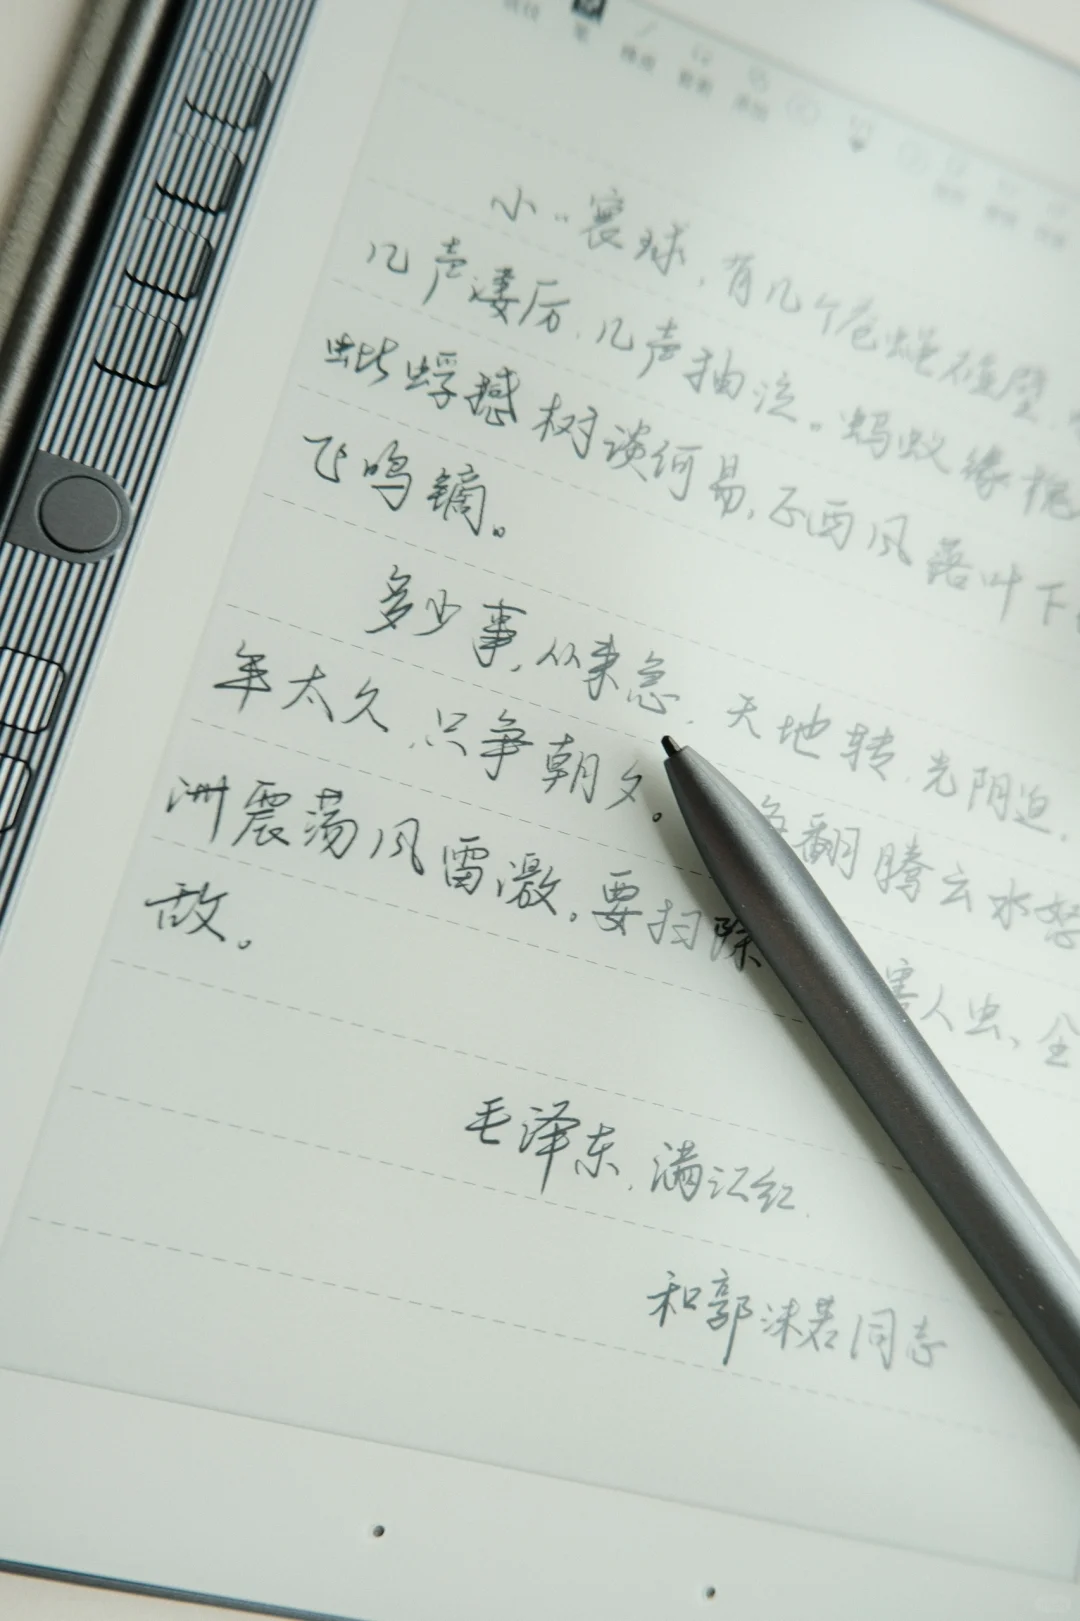 小小寰球,有几个苍蝇碰壁,
几声凄厉,几声抽泣。蚂蚁缘槐
蚍蜉撼树谈何易,正西风落叶下
飞鸣镝。
多少事,从来急,天地转,光阴迫,
年太久,只争朝夕。翻腾云水怒
洲震荡风雷激。要扫除害人虫,全
敌。
毛泽东,满江红.
和郭沫若同志